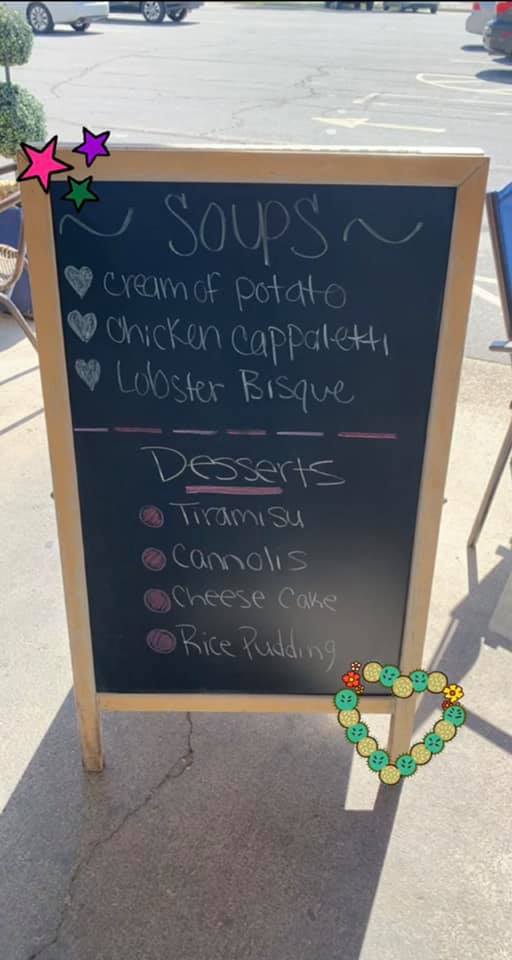 ~ SOUPS ~
cream of potato
chicken cappaletti
Lobster Bisque
Desserts
Tiramisu
Cannolis
Cheese Cake
Rice Pudding